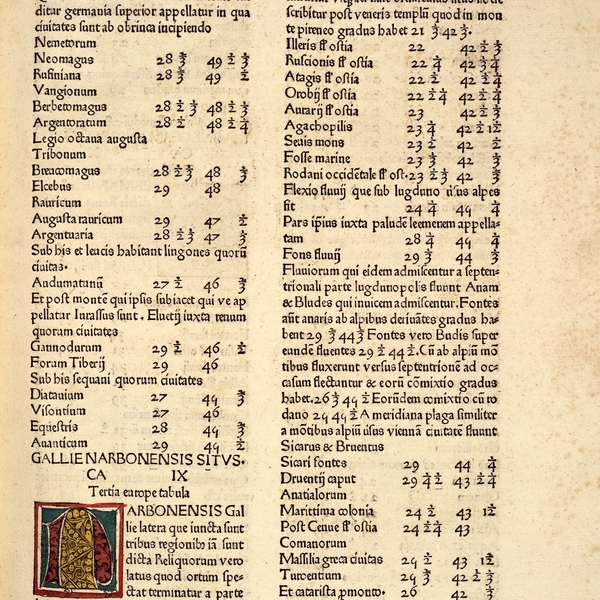 ditur germania superior appellatur in qua
ciuitates sunt ab obrinca incipiendo
Nemetorum
Neomagus 28 ⅔ 49 ½ ⅓
Rufiniana 28 ⅔ 49 ½
Vangionum
Berbetomagus 28 ½ ⅓ 48 ½ ⅓
Argentoratum 28 ½ 48 ½ ¼
Legio octaua augusta
Tribonum
Breucomagus 28 ½ ⅓ 48 ⅓
Elcebus 29 48
Rauricum
Augusta rauricum 29 47 ½
Argentuaria 28 ½ ⅓ 47 ⅔
Sub his et leucis habitant lingones quorū
ciuitas.
Audumatunū 27 ½ 46 ⅓
Et post montē qui ipsis subiacet qui ve ap
pellatur Iurassus sunt. Eluetij iuxta renum
quorum ciuitates
Gannodurum 29 ½ 46 ½
Forum Tiberij 29 46
Sub his sequani quorum ciuitates
Diatauium 27 45 ⅔
Visontium 27 46
Equestris 28 45 ⅔
Auanticum 29 45 ½
GALLIE NARBONENSIS SITVS.
CA IX
Tertia europe tabula
NARBONENSIS Gal
lie latera que iuncta sunt
tribus regionibꝫ iā sunt
dicta Reliquorum vero
latus quod ortum spe-
ctat terminatur a parte
scribitur post veneris templū quod in mon
te pireneo gradus habet 21 ⅔ 42 ⅓.
Illeris fl̄ ostia 22 42 ½ ⅓
Ruscionis fl̄ ostia 22 ¼ 42 ⅔ ¼
Atagis fl̄ ostia 22 ½ 42 ½ ¼
Orobij fl̄ ostia 22 ½ ¼ 42 ½ ¼
Aurarij fl̄ ostia 23 42 ½ ⅓
Agachopilis 23 ¼ 42 ½ 1⁄12
Setius mons 23 ½ 42 ½
Fosse marine 23 ⅓ 42 ⅔
Rodani occidētale fl̄ ost. 23 ½ ⅓ 42 ⅔
Flexio fluuij que sub lugduno ūsus alpes
fit 24 ¼ 45 ¼
Pars ip̄ius iuxta paludē leemenem appella-
tam 28 ¼ 45 ¼
Fons fluuij 29 ⅓ 44 ⅓
Fluuiorum qui eidem admiscentur a septen-
trionali parte lugdunopolis fluunt Anam
& Bludes qui inuicem admiscentur. Fontes
aūt anaris ab alpibus deriuātes gradus ha-
bent 29 ⅓ 44 ⅔ Fontes vero Budis super
eundē fluentes 29 ½ 44 ½. Cū ab alpiū mō
tibus fluxerunt versus septentrionē ad oc-
casum flectuntur & eorū cōmixtio gradus
habet. 26 ⅔ 45 ½ Eorūdem cōmixtio cū ro
dano 24 45 ½ A meridiana plaga similiter
a mōtibus alpiū ūsus viennā ciuitatē fluunt
Sicarus & Bruentus
Sicari fontes 29 44 ¼
Druentij caput 29 ¼ ½ 43 ½ ¼
Anatialorum
Marittima colonia 24 ½ 43 1⁄12
Post Cenue fl̄ ostia 24 ½ ¼ 43
Comanorum
Massilia greca ciuitas 24 ½ 43 1⁄12
Turoentium 24 ⅔ 42 ½ ⅓
Et catarista ꝓmonto. 26 42 ⅔